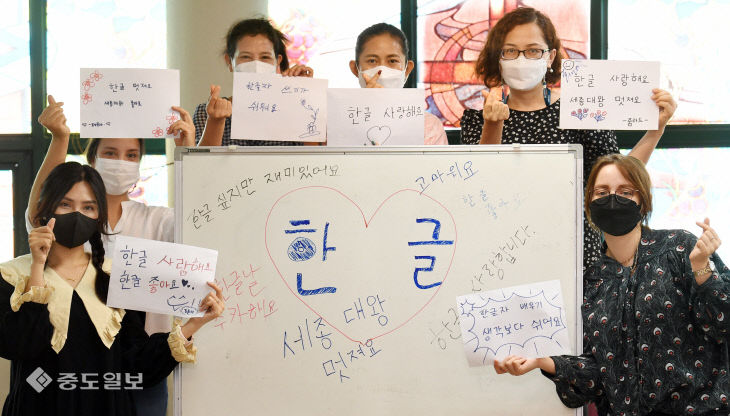 한글 멋져요
세종대왕 좋아요
한글자
쉬워요
한글 사랑해요
한글 사랑해요
세종대왕 멋져요
한글 사랑해요
한글 좋아요
한글자 배우기
생각보다 쉬워요
한글 싶지만 재미있어요
고마워요
한글
좋아요
한글
한글날
축카해요
한글 사랑합니다.
세종 대왕
멋져요
중도일보